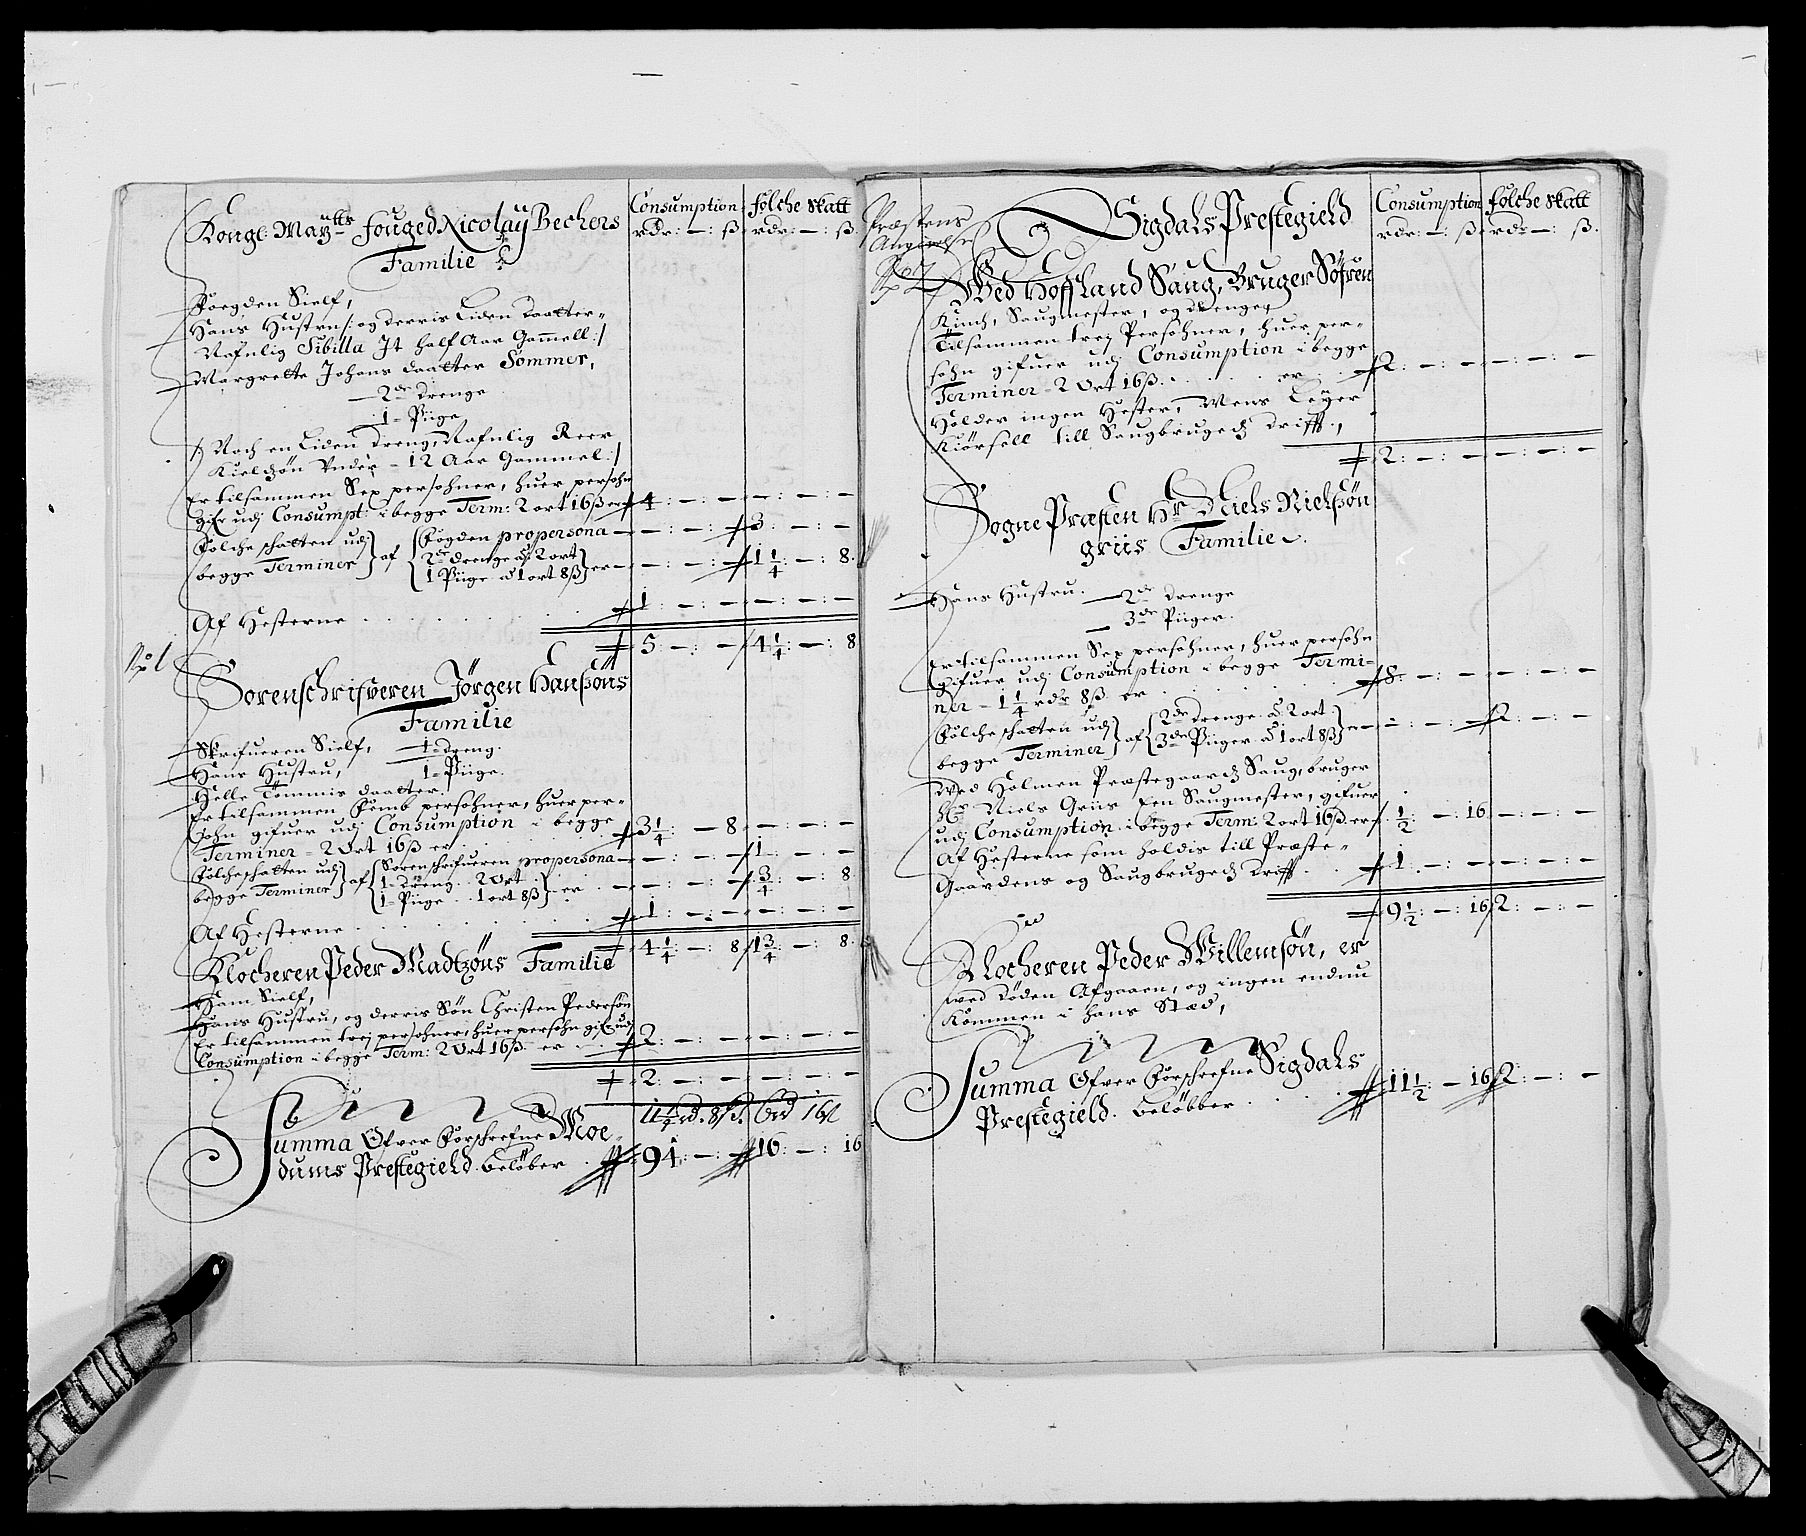 Consumption Folche Skatt
rdr: — : ß. rdr: — : ß.
Kongl: Maÿtts Fouged Nicolaÿ Bechers
Familie
Foegden Sielf,
Hans Hustru /: og derris Liden daatter
Nafnlig Sibilla It half Aar Gammell :/
Margrette Johans daatter Sommer,
2de drenge
1 = Piige
/: Noch en Liden dreng, Nafnlig Reer
Kieldßön Under = 12 Aar Gammel :/
Er tilsammen Sex persohner, huer persohn
gifr udj Consumpt: i begge Term: 2 ort 16 ß er 4: — : — — : — : —
Folche schatten udj begge Terminer } af { Fogden propersona — — : — : — 3: — : —
2de drenge â 2 ort
1 Piige â 1 ort 8 ß } er — — : — : — 1 1/4 : — : 8
Af Hesterne . . . 1: — : — — : — : —
5: — : — 4 1/4 : — : 8
No 1
Sorenschrifveren Jörgen Hanßöns
Familie
Skrifueren Sielf, 1 = dreng.
Hans Hustru, 1 = Piige.
Helle Tommis daatter.
Er tilsammen Femb persohner, huer per-
sohn gifuer udj Consumption i begge
Terminer = 2 Ort 16 ß er 3 1/4 : — 8 — : — : —
Folche schatten udj begge Terminer } af { Sorenschrifueren propersona — — : — : — 1: — : —
1 = dreng . . 2 Ort
1 = Piige . . 1 ort 8 ß } er — : — : — 3/4 — : 8
Af Hesterne . . . 1: — : — — : — : —
4 1/4 : — : 8 1 3/4 : — : 8
Klocheren Peder Madtzöns Familie
Ham Sielf,
Hans Hustru, og derris Sön Christen Pedersön
Er tilsammen trej persohner, huer persohn gifr udj
Consumption i begge Term: 2 Ort 16 ß. er 2: — : — — : — : —
2: — : — — : — : —
11 1/4 rd. 8 ß. 6 rd 16 ß
Summa Ofver Forschrefne Moe-
dums Prestegield. belöber . 94: — : — 10: — : 16

Præstens
Angivelse
No 2
Consumption Folche Skatt
rdr: — : ß rdr — : ß.
Sigdals Prestegield
Wed Hoffland Saug, Bruger Söfren
Kinch, Saugmester, og drenge,
Tilsammen trej Persohner, huer per-
sohn gifuer udj Consumption i begge
Terminer = 2 Ort 16 ß . . . er . . 2: — : — — : — : —
Holder ingen Hester, Mens Leÿer
Kiörsell till Saugbrugedß drifft.,
2: — : — — : — : —
Sogne Præsten Hr Niels Nielßön
Griis Familie.
Hans Hustru. 2de drenge
3de Piiger.
Er tilsammen Sex persohner, huer persohn
gifuer udj Consumption i begge Termi-
ner = 1 1/4 rdr 8 ß er . . . 8: — : — — : — : —
Folche schatten udj begge Terminer } af { 2de drenge â 2 ort
3de Piiger â 1 ort 8 ß } er — : — : — 2: — : —
Wed Holmen Præstegaardß Saug, bruger
Hr Niels Griis Een Saugmester, gifuer
udj Consumption i begge Term: 2 ort 16 ß. er 1/2 : — 16. — : — : —
Af Hesterne som holdis till Præste-
Gaardens og Saugbrugedß Drifft . . 1. — : — — : — : —
9 1/2 : — : 16 2: — : —
Klocheren Peder Willemsön, er
wed döden Afgaaen, og ingen endnu
Kommen i hans Stæd,
Summa Ofver Forschrefne Sigdals
Prestegield. belöbber . . . 11 1/2 : — 16 2: — : —